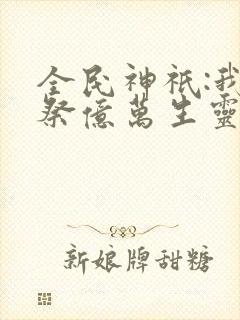 全民神祇:我
祭億萬生靈
新娘牌甜糖